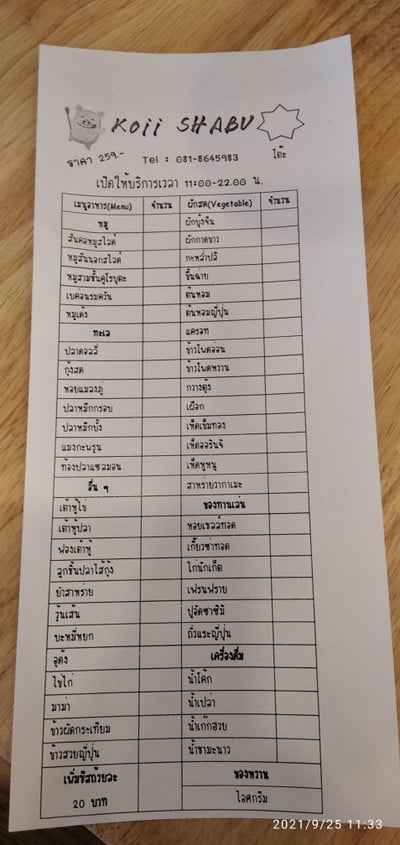 Koii SHABU
ราคา 259.- Tel : 081-8645983 โต๊ะ
เปิดให้บริการเวลา 11:00-22.00 น.
เมนูอาหาร(Menu) จำนวน ผักสด(Vegetable) จำนวน
หมู ผักบุ้งจีน
สันคอหมูสไลด์ ผักกาดขาว
หมูสันนอกสไลด์ กะหล่ำปลี
หมูสามชั้นคูโรบูตะ ขึ้นฉ่าย
เบค่อนรมควัน ต้นหอม
หมูเด้ง ต้นหอมญี่ปุ่น
ทะเล แครอท
ปลาดอลลี่ ข้าวโพดอ่อน
กุ้งสด ข้าวโพดหวาน
หอยแมลงภู่ กวางตุ้ง
ปลาหมึกกรอบ เผือก
ปลาหมึกบั้ง เห็ดเข็มทอง
แมงกะพรุน เห็ดออรินจิ
ท้องปลาแซลมอน เห็ดหูหนู
อื่น ๆ สาหร่ายวากาเมะ
เต้าหู้ไข่ ของทานเล่น
เต้าหู้ปลา หอยเชลล์ทอด
ฟองเต้าหู้ เกี๊ยวซ่าทอด
ลูกชิ้นปลาไส้กุ้ง ไก่นักเก็ต
ยำสาหร่าย เฟรนฟราย
วุ้นเส้น ปูอัดซาซิมิ
บะหมี่หยก ถั่วแระญี่ปุ่น
อุด้ง เครื่องดื่ม
ไข่ไก่ น้ำโค้ก
มาม่า น้ำเปล่า
ข้าวผัดกระเทียม น้ำเก๊กฮวย
ข้าวสวยญี่ปุ่น น้ำชามะนาว
เพิ่มชีสถ้วยละ ของหวาน
20 บาท ไอศกรีม
2021/9/25 11:33